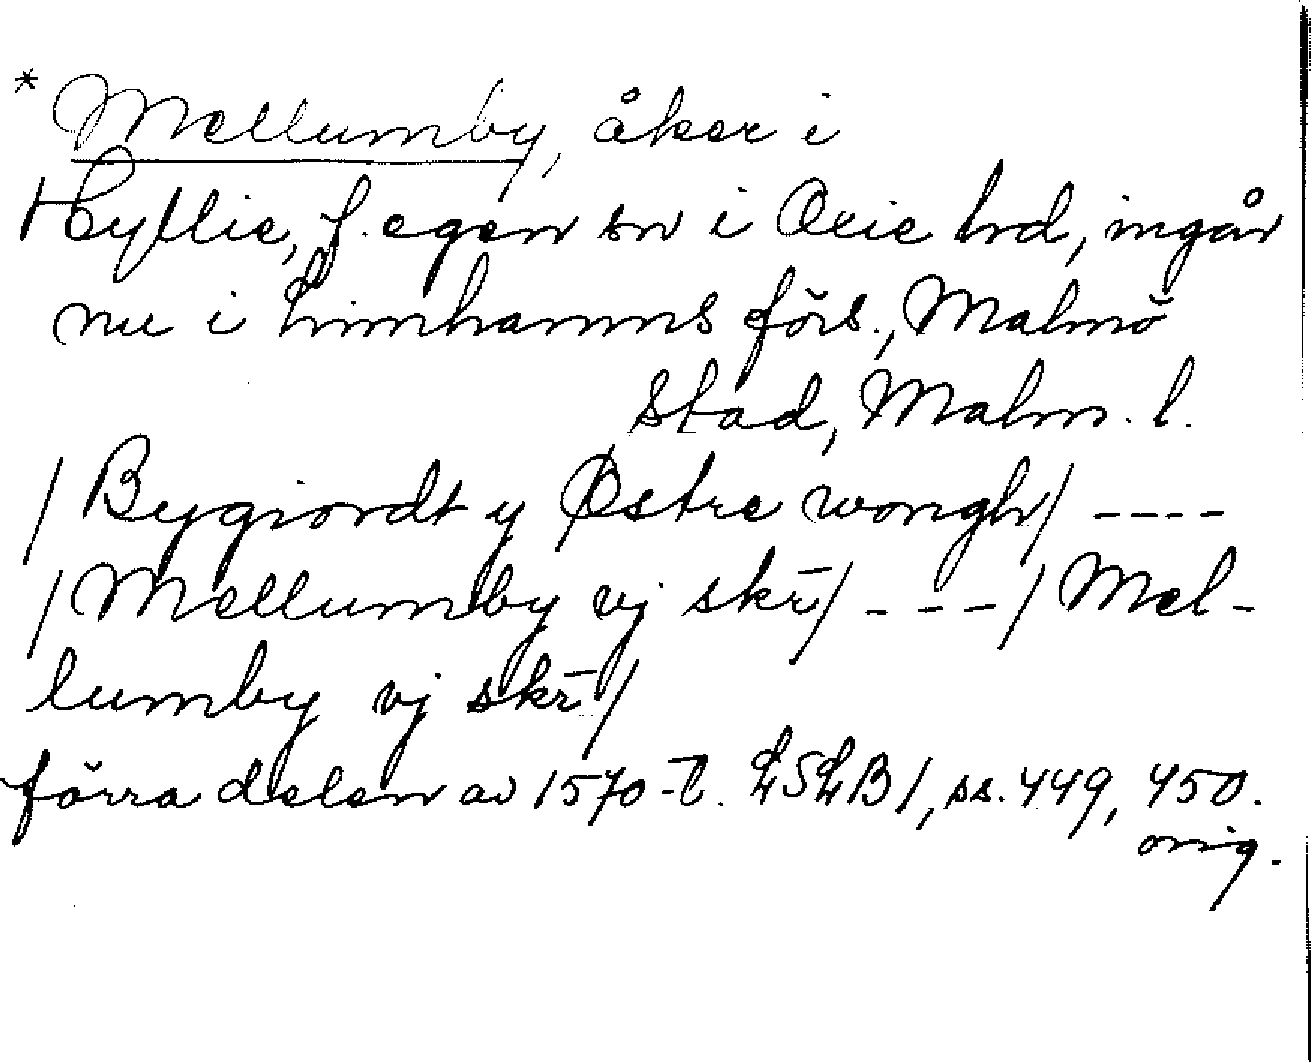 * Mellumby, åker i
Hyllie, f. egen sn i Oxie hd, ingår
nu i Limhamns förs., Malmö
stad, Malm. l.
/ Bygiordt y Østre wongh / ----
/ Mellumby vj skr̄ / ---- / Mel-
lumby vj skr̄ /
förra delen av 1570-t. LSLB 1, ss. 449, 450.
orig.